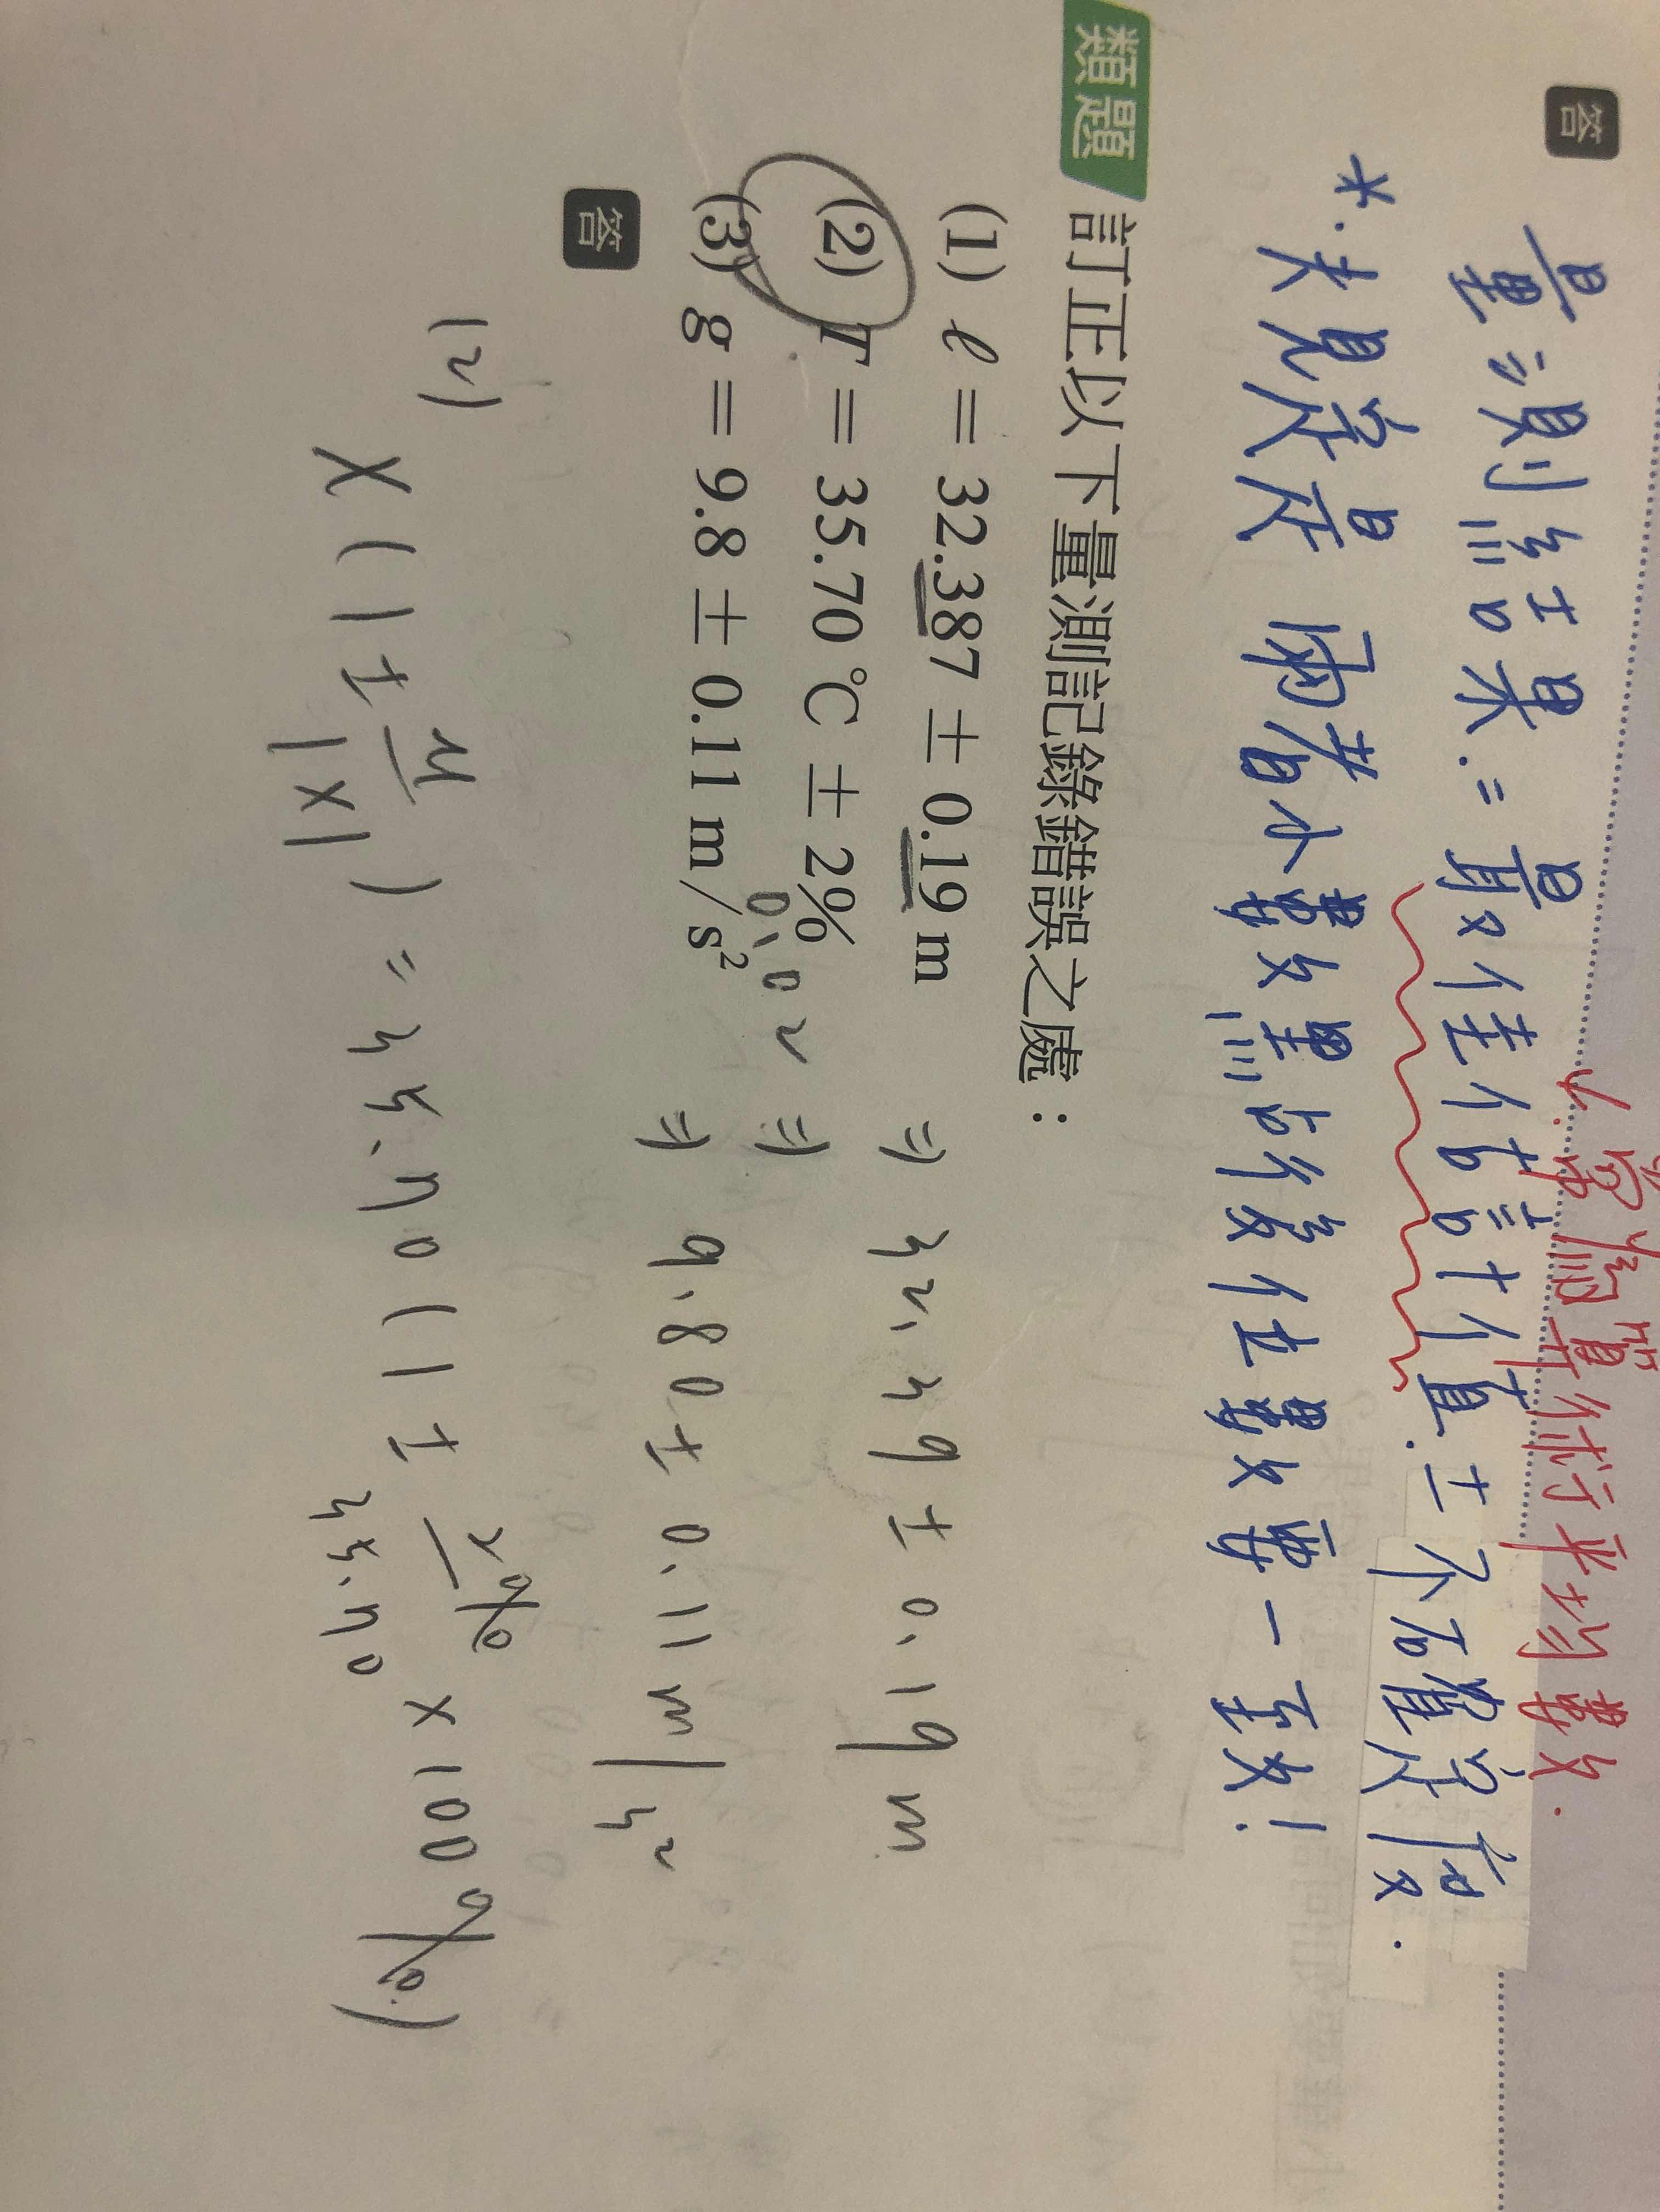 答
量測結果 = 最佳估計值 ± 不確定度.
↳ 常用算術平均數.
*. 規定是 兩者小數點的後位數要一致!
類題 訂正以下量測記錄錯誤之處：
(1) ℓ = 32.387 ± 0.19 m ⇒ 32.39 ± 0.19 m
(2) T = 35.70 ℃ ± 2% ⇒
0.02
(3) g = 9.8 ± 0.11 m/s² ⇒ 9.80 ± 0.11 m/s²
答
(2) X(1 ± u/|X|) = 35.70(1 ± 2%/35.70 × 100%)